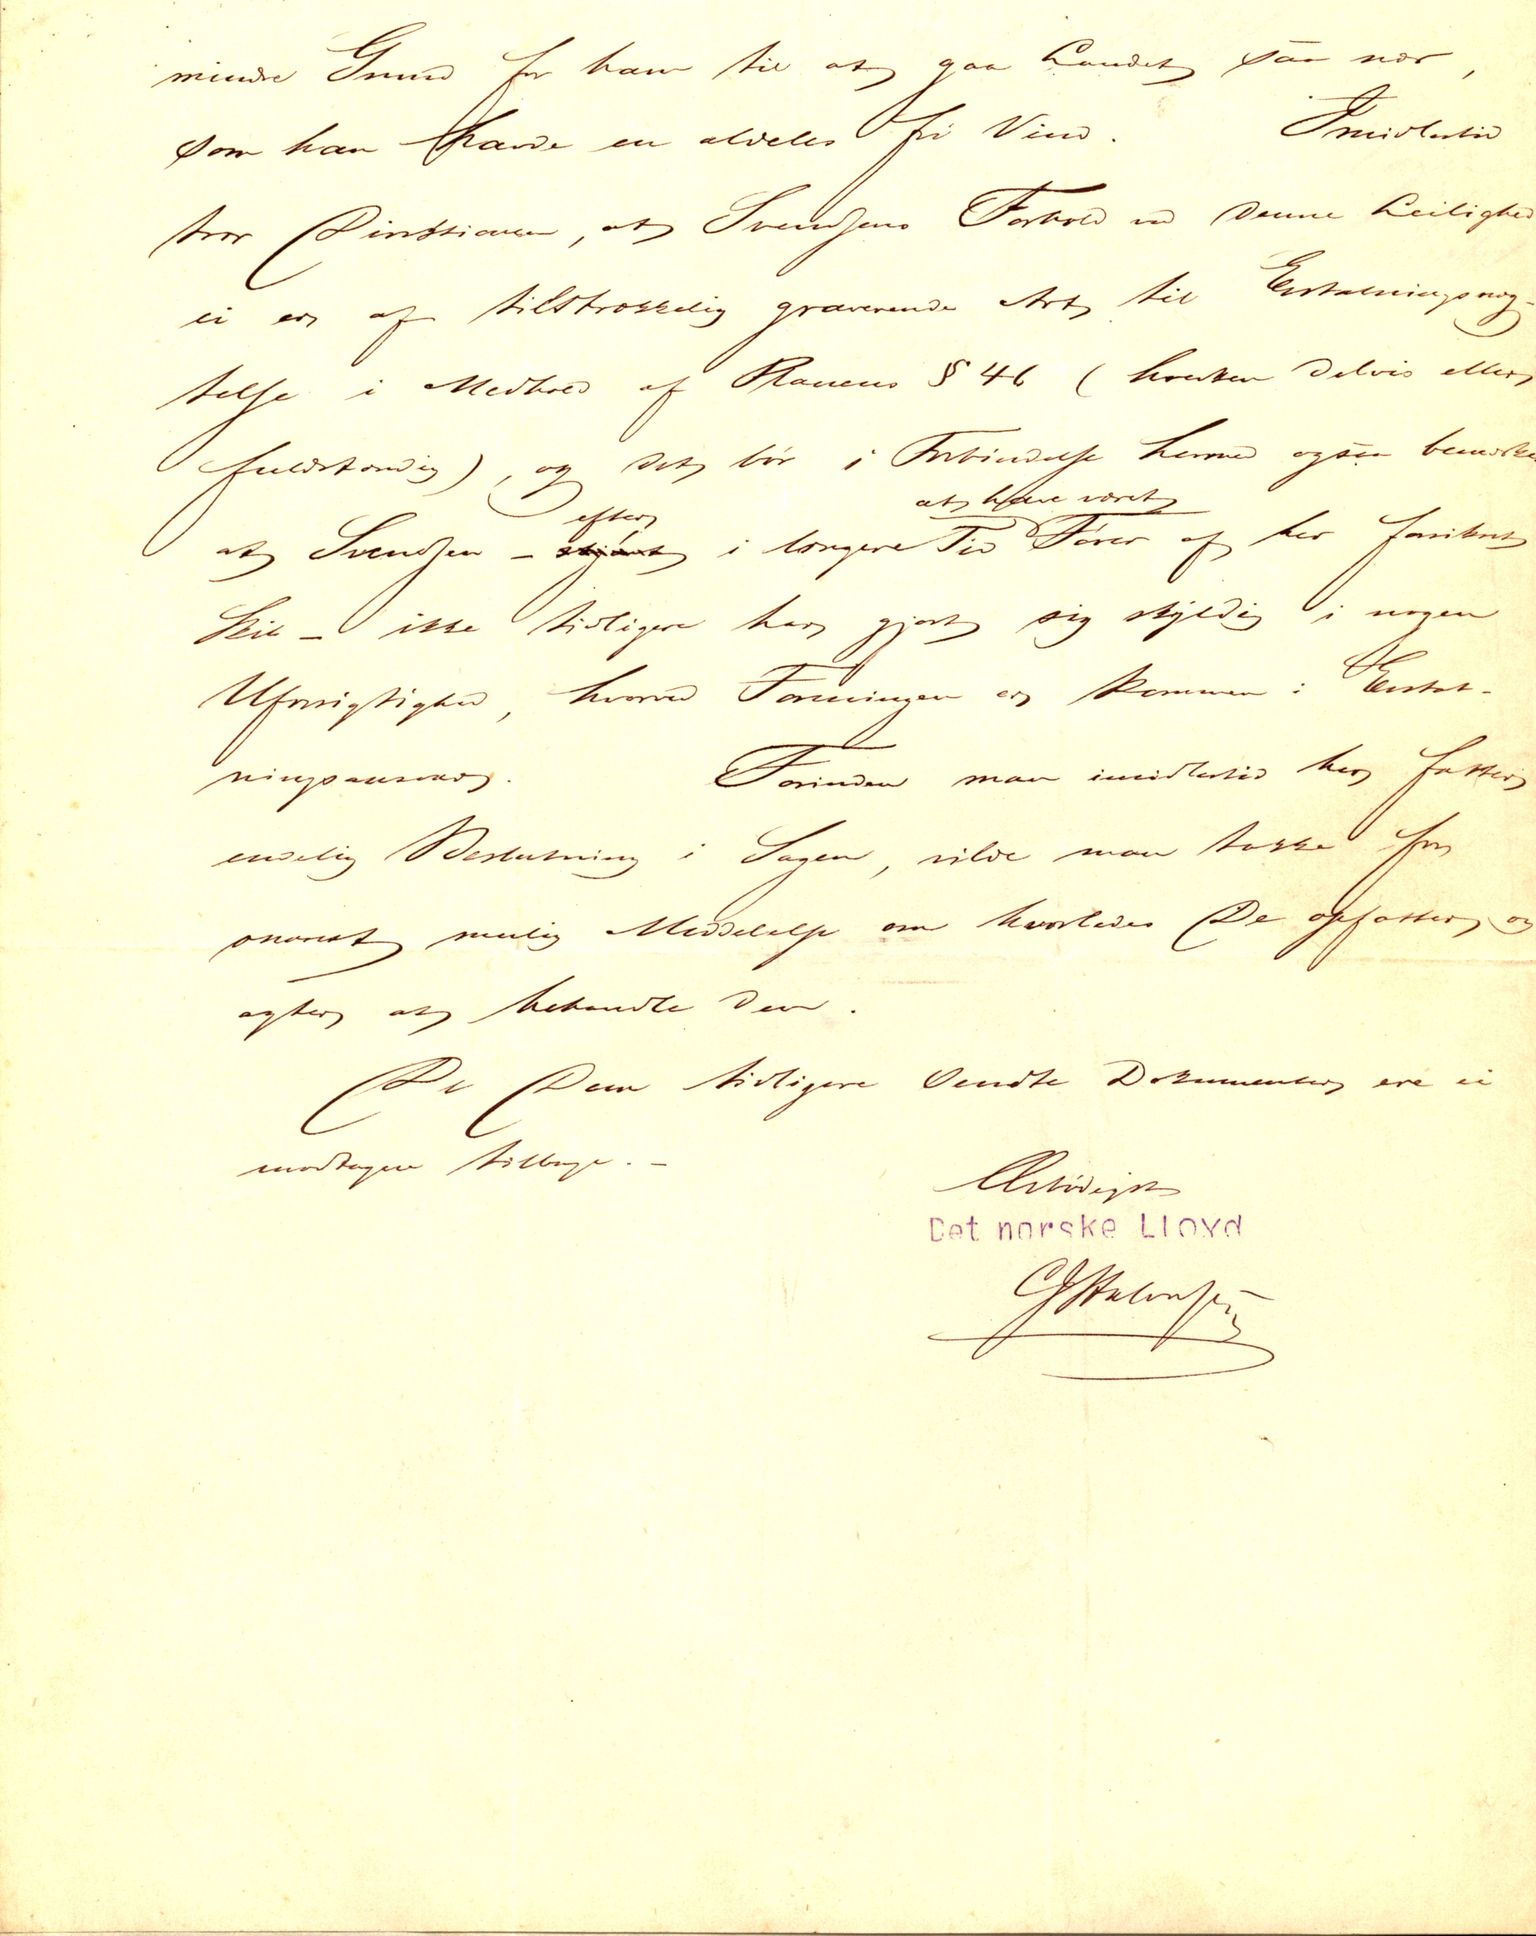 mindre Grund for ham til at gaa Landet saa nær,
som han havde en aldeles fri Vind. Imidlertid
tror Direktionen, at Svendsens Forhold ved denne Leilighed
ei er af tilstrækkelig graverende Art til Erstatningsnæg-
telse i Medhold af Planens § 46 (hverken delvis eller
fuldstændig), og det bør i Forbindelse hermed ogsaa bemærkes
at Svendsen – efter i længere Tid at have været Fører af her forsikret
Skib – ikke tidligere har gjort sig skyldig i nogen
Uforsigtighed, hvorved Foreningen er kommen i Erstat-
ningsansvar. Forinden man imidlertid her fatter
endelig Beslutning i Sagen, vilde man takke for
snarest mulig Meddelelse om hvorledes De opfatter og
agter at behandle den.
De Dem tidligere sendte Dokumenter ere ei
modtagne tilbage. –
Ærbødigst
Det norske Lloyd